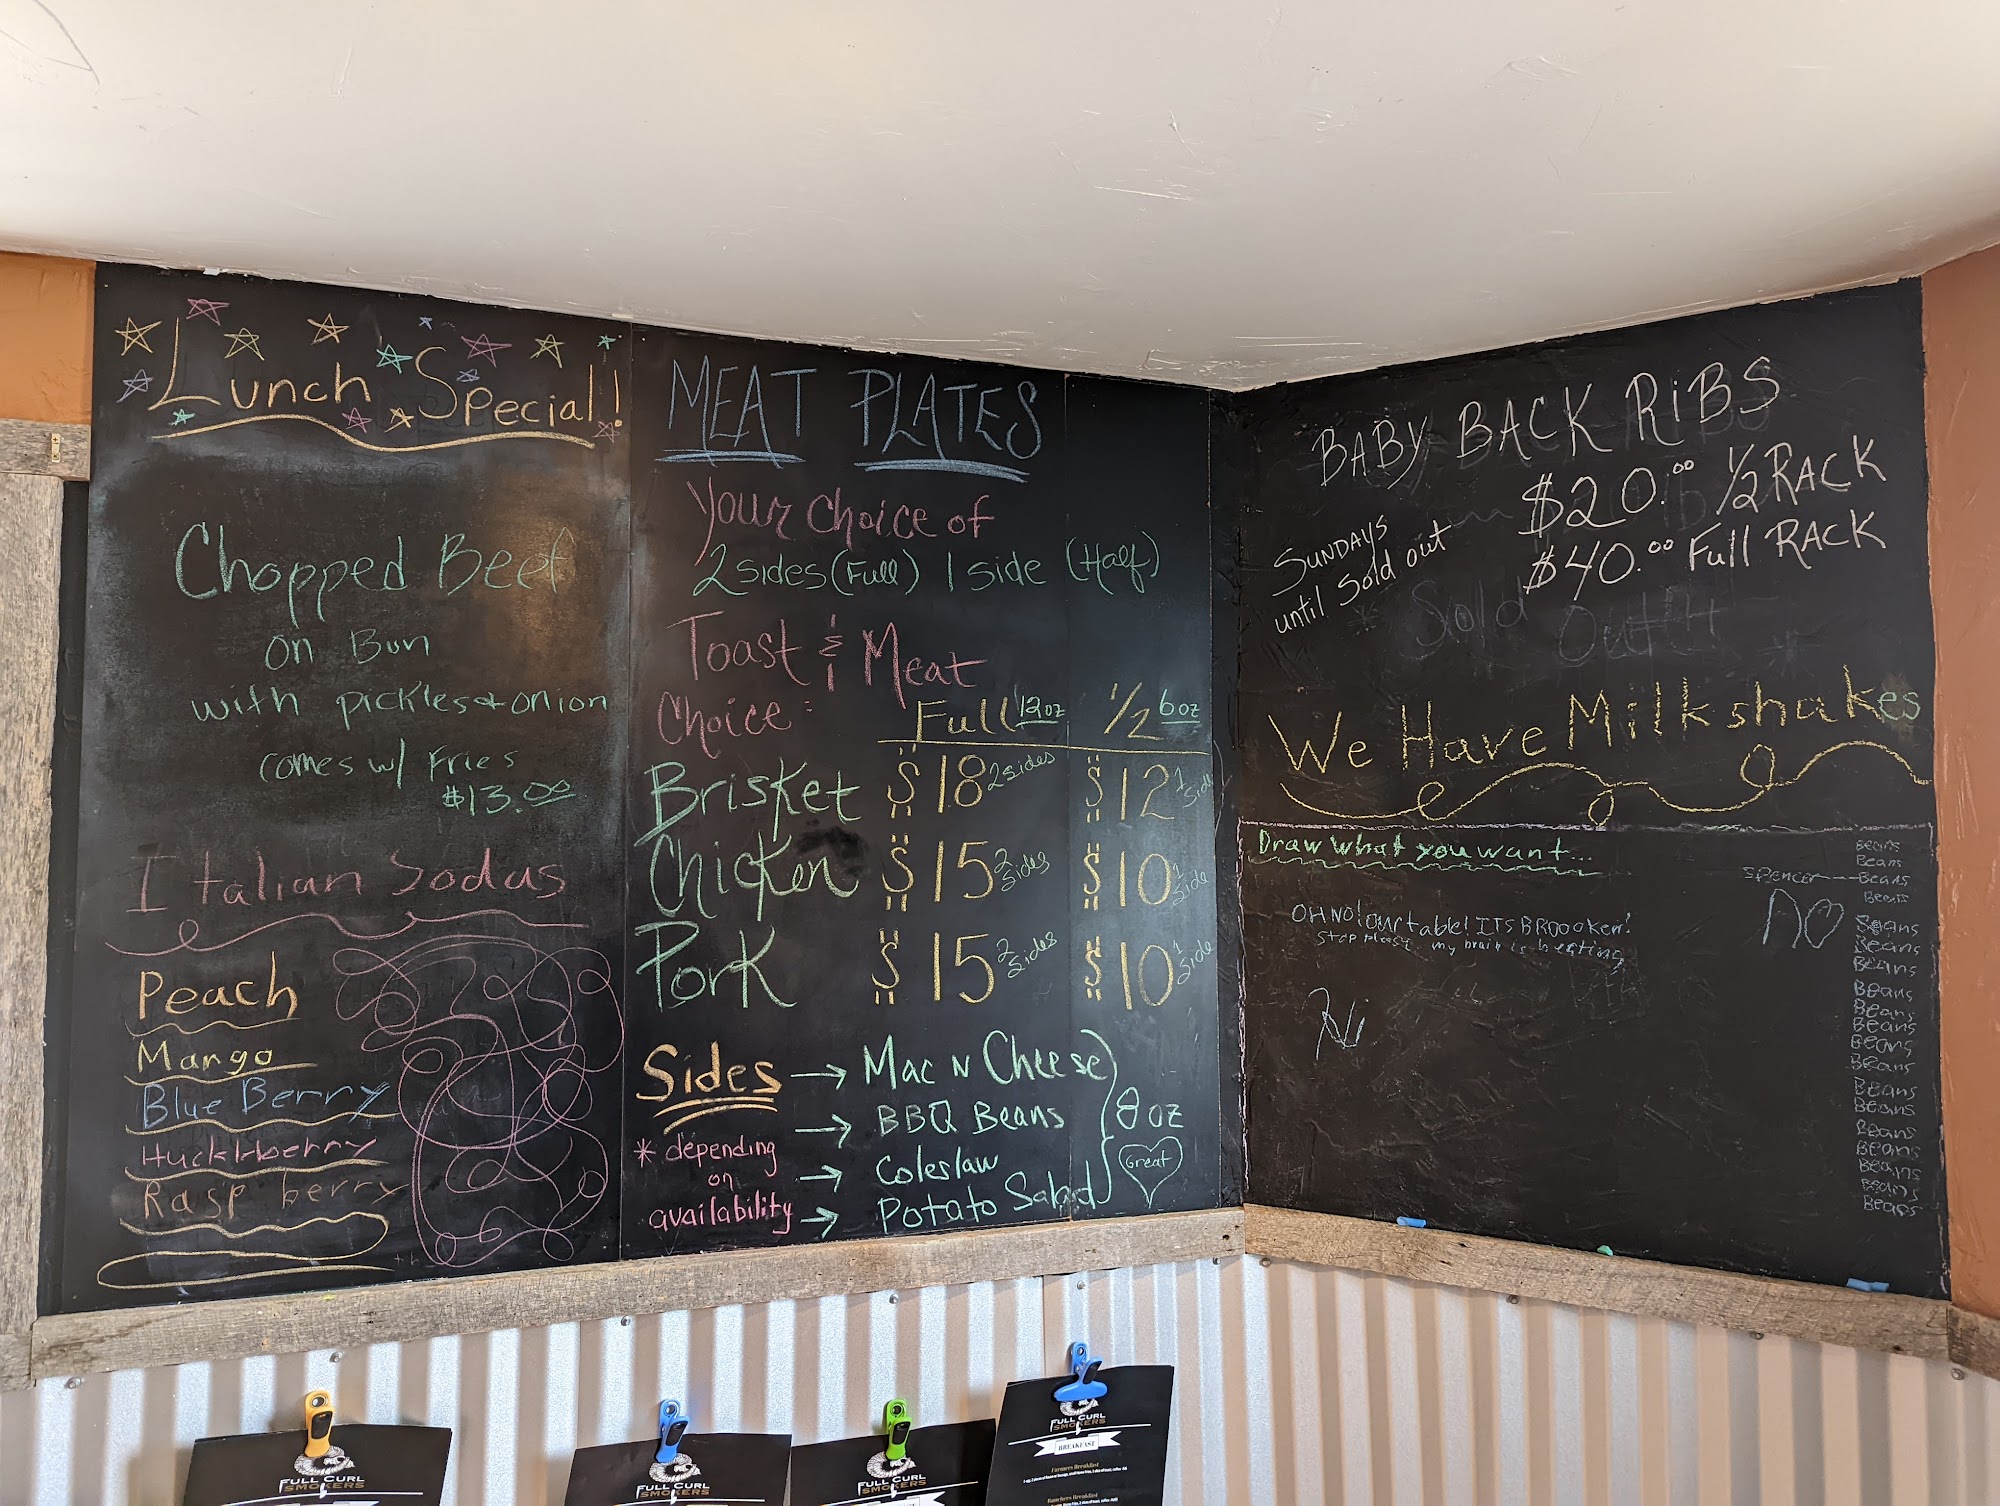 Lunch Special!
Chopped Beef
on Bun
with pickles & onion
comes w/ Fries
$13.00
Italian Sodas
Peach
Mango
Blue Berry
Rasp berry
MEAT PLATES
Your Choice of
2 sides (Full) 1 side (Half)
Toast & Meat
Choice: Full 12oz 1/2 6oz
Brisket $18 2 sides $12 1 side
Chicken $15 2 sides $10 1 side
Pork $15 2 sides $10 1 side
Sides → Mac N Cheese
→ BBQ Beans 8 oz
* depending on availability
→ Coleslaw
→ Potato Salad
Great
BABY BACK RiBS
$20.00 1/2 RACK
$40.00 Full RACK
SUNDAYS
until Sold out
Sold Out!
We Have Milkshakes
Draw what you want...
OH NO! our table! ITS BROOOKEN!
stop please my brain is
Hi
NO
Spencer
Beans
Beans
Beans
Beans
Beans
Beans
Beans
Beans
Beans
Beans
Beans
Beans
Beans
Beans
Beans
Beans
Beans
Beans
Beans
FULL CURL
SMOKERS
FULL CURL
SMOKERS
FULL CURL
SMOKERS
FULL CURL
SMOKERS
BREAKFAST
Farmers Breakfast
Ranchers Breakfast